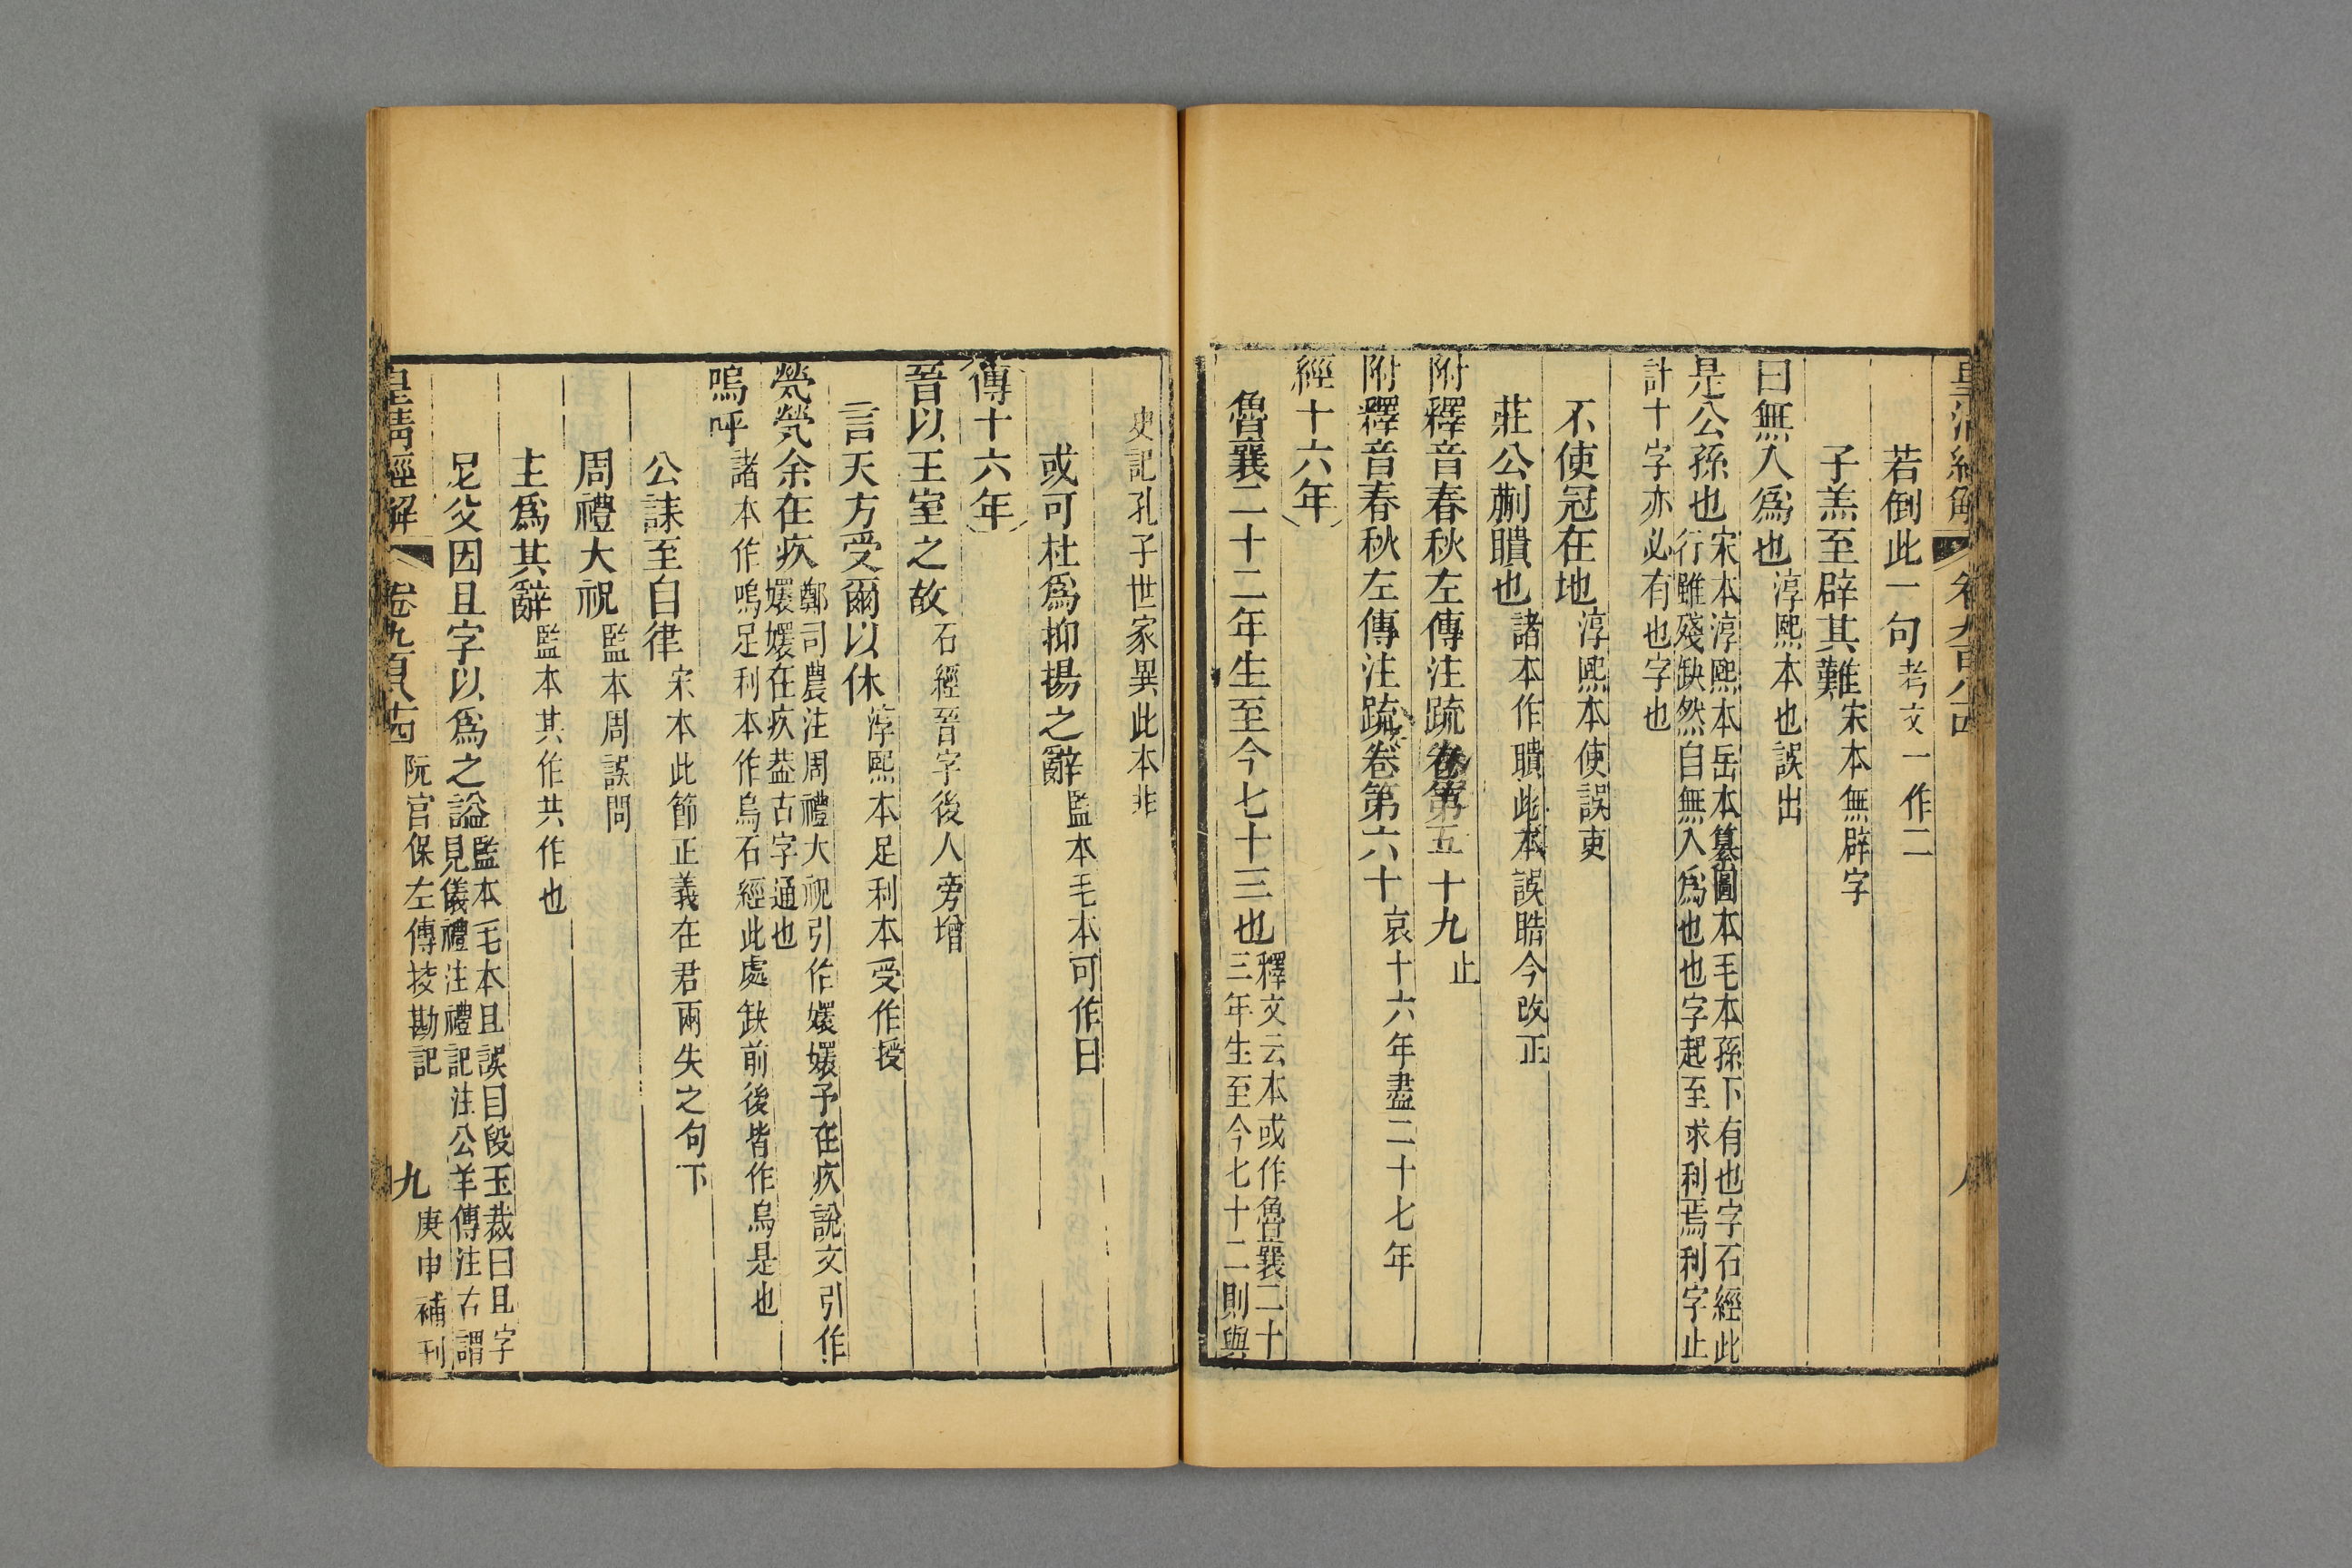 若倒此一句考文一作二
子羔至辟其難宋本無辟字
曰無入爲也淳熙本也誤出
是公孫也宋本淳熙本岳本纂圖本毛本孫下有也字石經此
行雖殘缺然自無入爲也也字起至求利焉利字止
計十字亦必有也字也
不使冠在地淳熙本使誤吏
莊公蒯聵也諸本作聵此本誤䁗今改正
附釋音春秋左傳注疏卷第五十九止
附釋音春秋左傳注疏卷第六十哀十六年盡二十七年
經十六年
魯襄二十二年生至今七十三也釋文云本或作魯襄二十
三年生至今七十二則與
史記孔子世家異此本非
或可杜爲抑揚之辭監本毛本可作曰
傳十六年
晉以王室之故石經晉字後人旁增
言天方受爾以休淳熙本足利本受作授
煢煢余在疚鄭司農注周禮大祝引作嬛嬛予在疚說文引作
嬛嬛在疚葢古字通也
嗚呼諸本作嗚足利本作烏石經此處缺前後皆作烏是也
公誄至自律宋本此節正義在君兩失之句下
周禮大祝監本周誤問
主爲其辭監本其作共作也
尼父因且字以爲之謚監本毛本且誤目段玉裁曰且字
見儀禮注禮記注公羊傳注古謂
皇清經解 卷九百八十四 阮宮保左傳挍勘記 九 庚申補刊